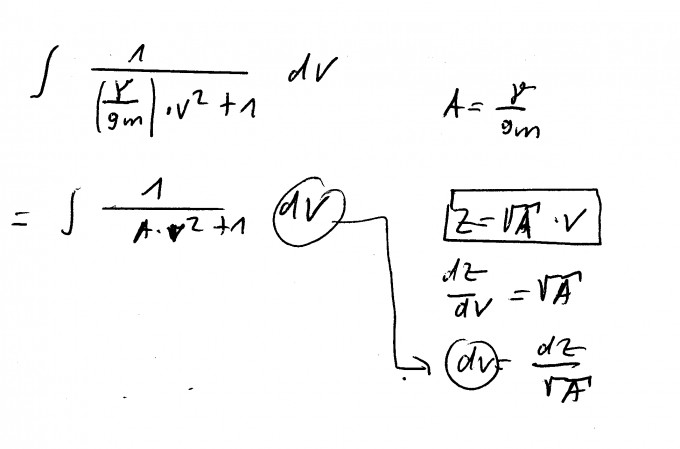 ∫ 1/((γ/gm)·v²+1) dv
A = γ/gm
= ∫ 1/(A·v²+1) dv
z = √A · v
dz/dv = √A
dv = dz/√A